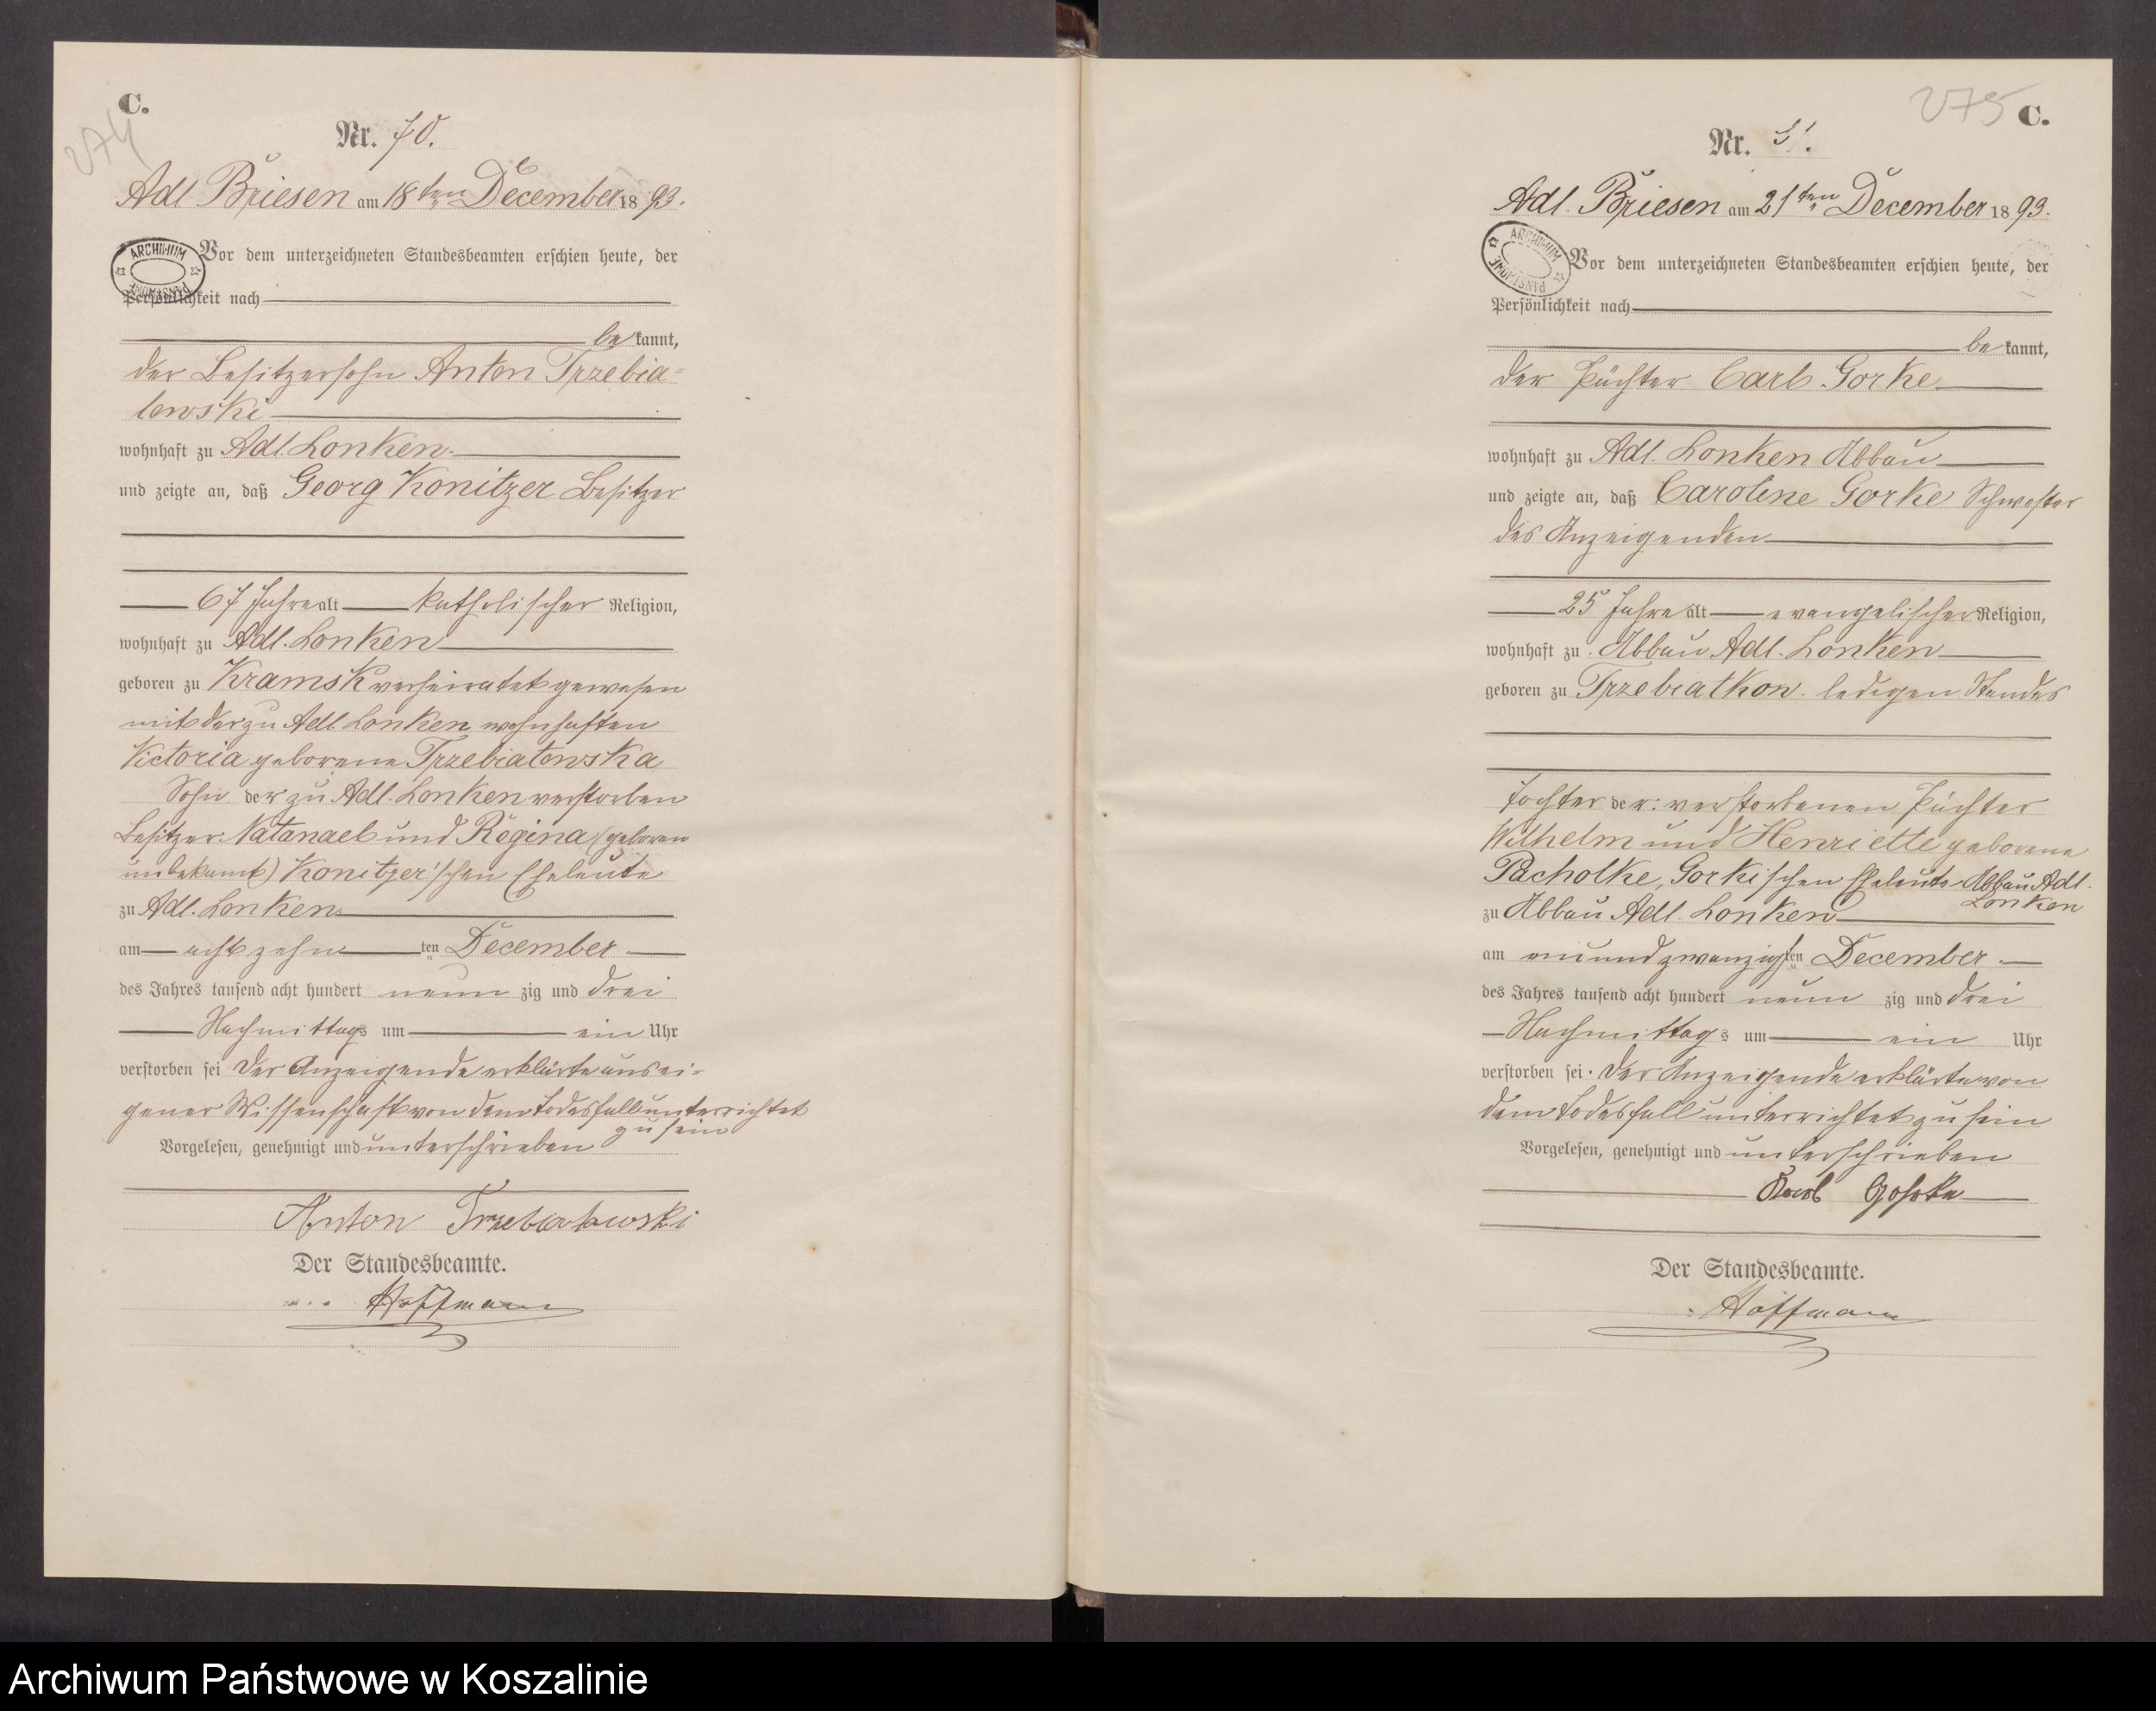 C.
274
Nr. 70.
Adl Briesen am 18ten December 1893.
ARCHIWUM
Vor dem unterzeichneten Standesbeamten erschien heute, der
Persönlichkeit nach
bekannt,
der Besitzersohn Anton Trzebia=
towski
wohnhaft zu Adl. Lonken.
und zeigte an, daß Georg Konitzer Besitzer
67 Jahre alt katholischer Religion,
wohnhaft zu Adl. Lonken
geboren zu Kramsk verheiratet gewesen
mit der zu Adl. Lonken wohnhaften
Victoria geborene Trzebiatowska
Sohn der zu Adl. Lonken verstorben
Besitzer Natanael und Regina (geboren
unbekannt) Konitzer'schen Eheleute
zu Adl. Lonken
am achtzehnten December
des Jahres tausend acht hundert neunzig und drei
Nachmittags um ein Uhr
verstorben sei Der Anzeigende erklärte aus ei-
gener Wissenschaft von dem Todesfall unterrichtet
zu sein
Vorgelesen, genehmigt und unterschrieben
Anton Trzebiatowski
Der Standesbeamte.
Hoffmann
275 C.
Nr. 71.
Adl. Briesen am 21ten December 1893.
ARCHIWUM
Vor dem unterzeichneten Standesbeamten erschien heute, der
Persönlichkeit nach
bekannt,
der Pächter Carl Gorke
wohnhaft zu Adl. Lonken Abbau
und zeigte an, daß Caroline Gorke Schwester
des Anzeigenden
25 Jahre alt evangelischer Religion,
wohnhaft zu Abbau Adl. Lonken
geboren zu Trzebiatkow ledigen Standes
Tochter der verstorbenen Pächter
Wilhelm und Henriette geborene
Pacholke, Gorkischen Eheleute Abbau Adl.
Lonken
zu Abbau Adl. Lonken
am einundzwanzigsten December
des Jahres tausend acht hundert neunzig und drei
Nachmittags um ein Uhr
verstorben sei. Der Anzeigende erklärte von
dem Todesfall unterrichtet zu sein
Vorgelesen, genehmigt und unterschrieben
Karl Gohrke
Der Standesbeamte.
Hoffmann
Archiwum Państwowe w Koszalinie